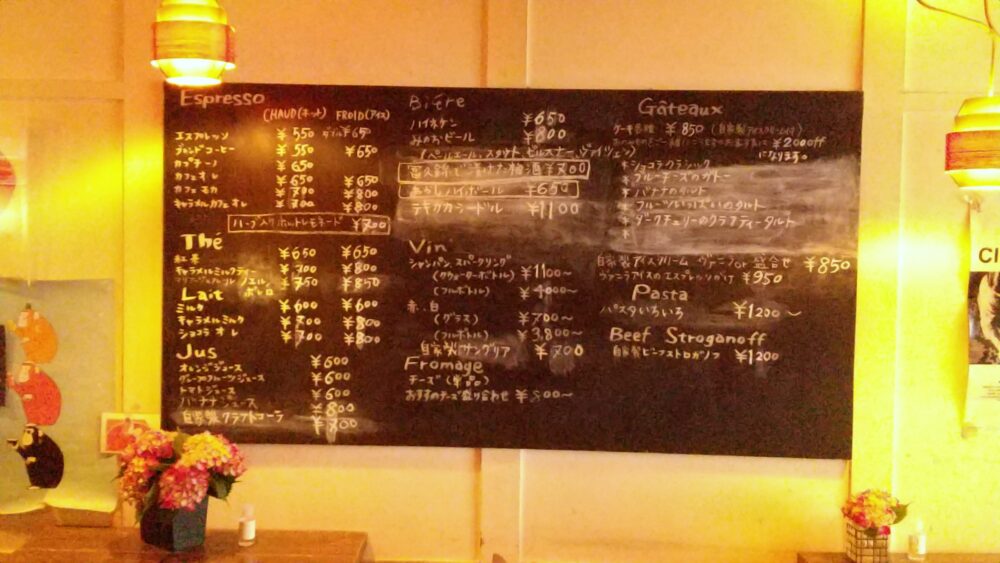 Espresso
CHAUD(ホット) FROID(アイス)
エスプレッソ ¥550 ダブル¥650
ブレンドコーヒー ¥550 ¥650
カプチーノ ¥650
カフェオレ ¥650 ¥650
カフェモカ ¥700 ¥800
キャラメルカフェオレ ¥700 ¥800
ハーブ入りホットレモネード ¥700
Thé
紅茶 ¥650 ¥650
キャラメルミルクティー ¥700 ¥800
ノエル ボレロ ¥750 ¥850
Lait
ミルク ¥600 ¥600
キャラメルミルク ¥700 ¥800
ショコラオレ ¥700 ¥800
Jus
オレンジジュース ¥600
グレープフルーツジュース ¥600
トマトジュース ¥600
バナナジュース ¥800
自家製クラフトコーラ ¥700
Bière
ハイネケン ¥650
みのおビール ¥800
(ペールエール、スタウト ピルスナー、ヴァイツェン)
梅酒 ¥700
あかしハイボール ¥650
テキカラシードル ¥1100
Vin
シャンパン、スパークリング
(クウォーターボトル) ¥1100〜
(フルボトル) ¥4000〜
赤、白
(グラス) ¥700〜
(フルボトル) ¥3,800〜
自家製サングリア ¥700
Fromage
チーズ(単品)
おすすめチーズ盛り合わせ ¥800〜
Gâteaux
ケーキ各種 ¥850 (自家製アイスクリーム付)
¥200off
になります。
*ショコラクラシック
*ブルーチーズのガトー
*バナナのタルト
*フルーツいっぱいのタルト
*ダークチェリーのクラフティータルト
*
自家製アイスクリーム ヴァニラor 盛合せ ¥850
ヴァニラアイスのエスプレッソがけ ¥950
Pasta
パスタいろいろ ¥1200〜
Beef Stroganoff
自家製ビーフストロガノフ ¥1200
CI